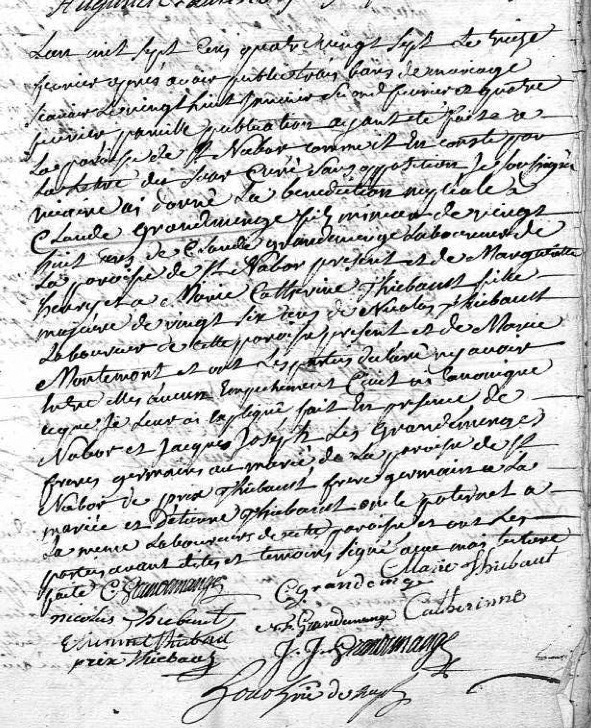 L'an mil sept cens quatre vingt sept le treize
fevrier après avoir publié trois bans de mariage
scavoir le vingt huit janvier second fevrier et quatre
fevrier pareille publication ayant été faite a
la paroisse de St Nabor comme il en conste par
la lettre du Sieur Curé sans opposition je soussigné
vicaire ai donné la benediction nuptiale a
Claude Grandmenge fils mineur de vingt
huit ans de Claude grandemenge laboureur de
la paroisse de St Nabor present et de Marguerite
henry et a Marie Catherine Thiebault fille
majeure de vingt six ans de Nicolas Thiebault
laboureur de cette paroisse present et de Marie
Montémont et ont les parties declaré n'y avoir
entre elles aucun empechement civil ni canonique
ceque je leur ai expliqué fait en presence de
Nabor et Jacques Joseph les Grandemenge
freres germains au marié, de la paroisse de St
Nabor de prix Thiebault frere germain a la
mariée et d'Etienne Thiebault oncle paternel a
la meme laboureurs de cette paroisse et ont les
parties avant dites et temoins signé avec moi lecture
faite C Grandemange C grandemenge Marie Thiebaut
nicolas thiebault N Grandemange Catherinne
Etienne Thiebaud J. J. Grandemange
prix thiebault